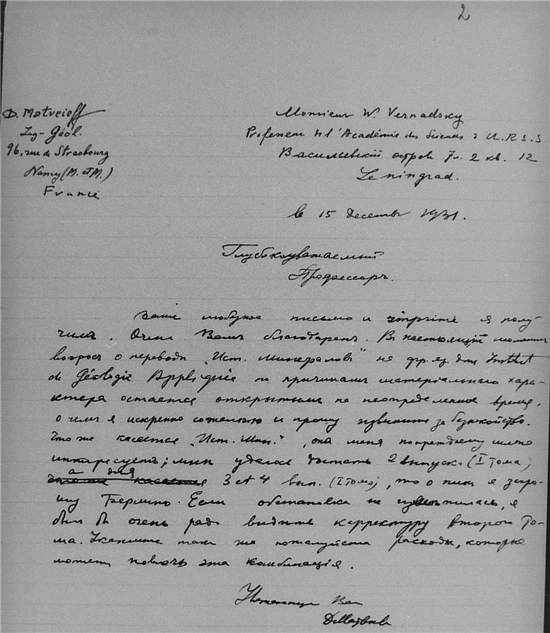 2
D. Motveieff
Ing-Géol.
96, rue de Strasbourg
Nancy (M. et M.)
France
Monsieur W. Vernadsky
Professeur à l'Académie des Sciences d U.R.S.S
Васильевскій островъ 7 л. 2 кв. 12
Leningrad.
le 15 Десембръ 1931.
Глубокоуважаемый
Профессоръ.
Ваше любезное письмо и imprimé я полу
чилъ. Очень Вамъ благодаренъ. Въ настоящій моментъ
вопросъ о переводѣ "Ист. Минераловъ" на фр. яз. для Institut
de Géologie Appliquée по причинамъ матеріальнаго хара-
ктера остается открытымъ на неопредѣленное время,
о чемъ я искренно сожалѣю и прошу извинить за безпокойство.
Что же касается "Ист. Мин.", она меня попрежнему сильно
интересуетъ; мнѣ удалось достать 2 выпуск. (I тома)
а для 3 et 4 вып. (I тома), то о нихъ я запро
шу Берлинъ. Если обстановка не измѣнилась, я
былъ бы очень радъ видѣть корректуру второго то-
ма. Укажите такъ же пожалуйста расходы, которые
можетъ повлечь эта комбинація.
Уважающій Вас
DMатвеев